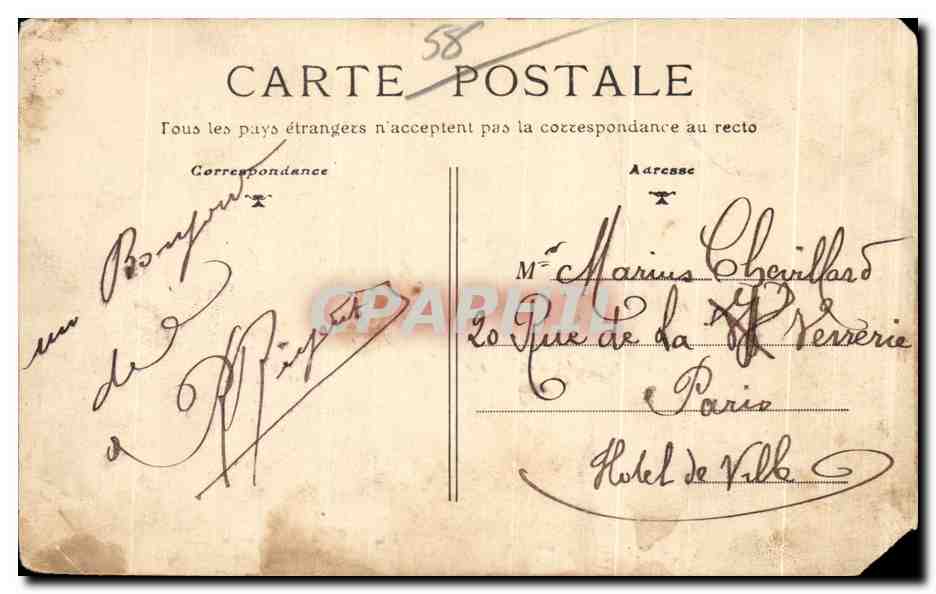 58
CARTE POSTALE
Tous les pays étrangers n'acceptent pas la correspondance au recto
Correspondance
un Bonjour
de
a
Adresse
Mr Marius Chevillard
20 Rue de La Verrerie
Paris
Hotel de Ville
CPAPHIL